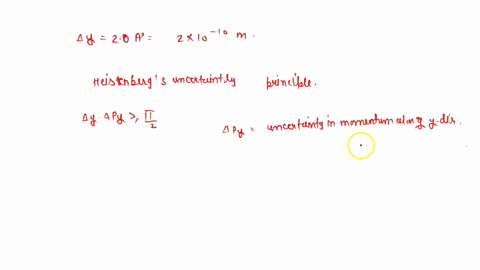 Δy = 2.0 A° = 2 × 10⁻¹⁰ m.
Heisenberg's uncertainty principle.
Δy · ΔPy ≥, ℏ/2
ΔPy = uncertainty in momentum along y-dir.